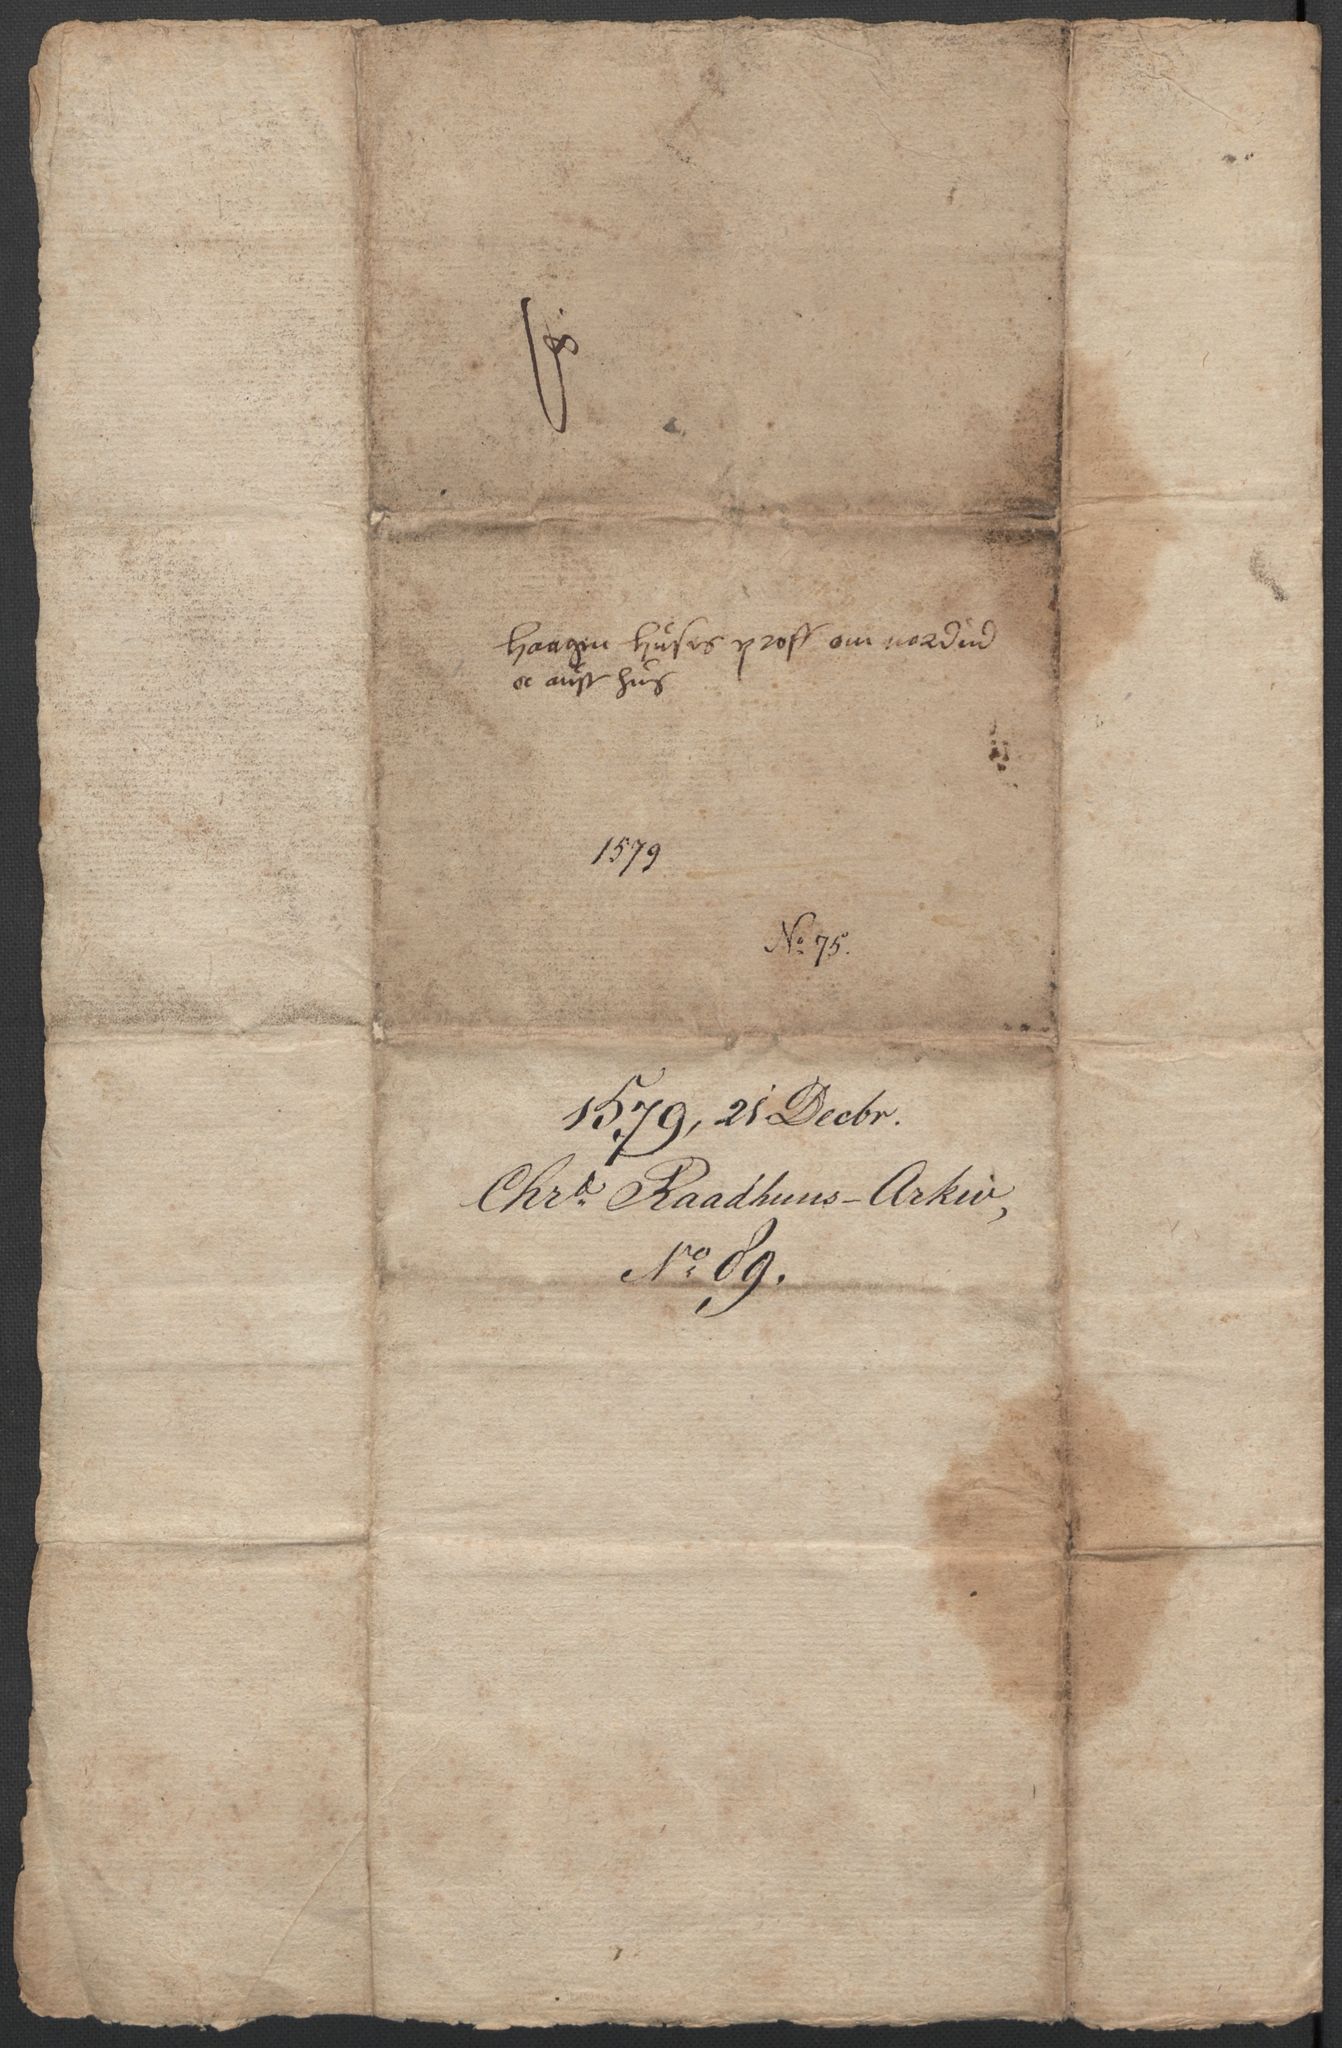 haagen huses proff om nordenn
oc aust hus
1579
No 75.
1579, 21 Decbr.
Chra Raadhuus-Arkiv,
No 89.